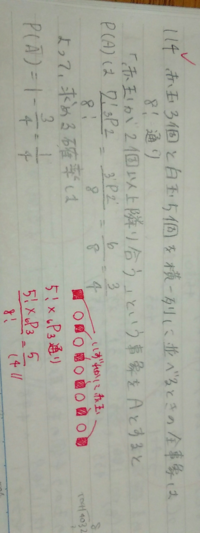 114 赤玉3個と白玉5個を横一列に並べるときの全事象は
8! 通り
「赤玉が2個以上隣り合う」という事象をAとすると
P(A)は 7!・3P2 / 8! = 3P2 / 8 = 6 / 8 = 3 / 4
よって、求める確率は
P(Ā) = 1 - 3/4 = 1/4
いずれかに赤玉
5! × 6P3 通り
5! × 6P3 / 8! = 5 / 14 //